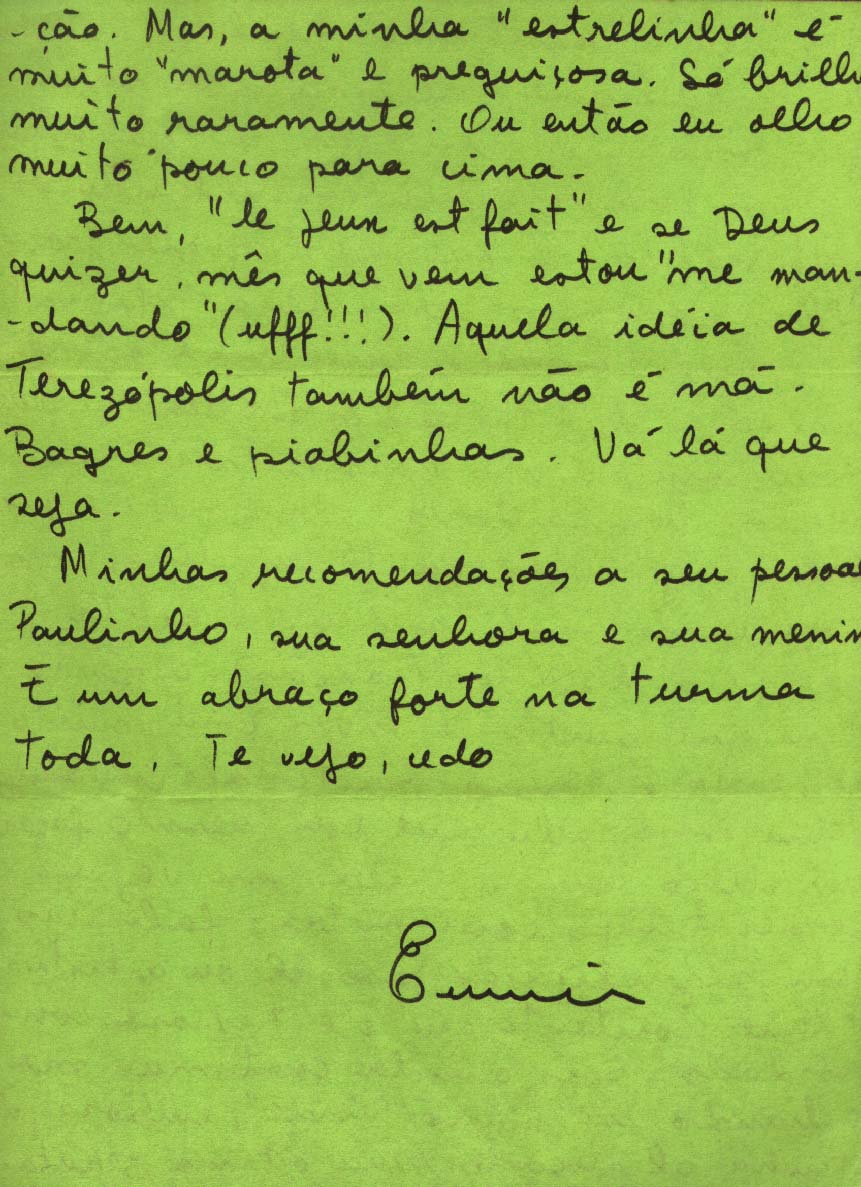 -ção. Mas, a minha "estrelinha" é
muito "marota" e preguiçosa. Só brilh
muito raramente. Ou então eu olho
muito pouco para cima.
Bem, "le jeux est fait" e se Deus
quizer, mês que vem estou "me man-
-dando" (ufff!!!). Aquela idéia de
Terezópolis também não é má.
Bagres e piabinhas. Vá lá que
seja.
Minhas recomendações a seu pessoa
Paulinho, sua senhora e sua menin
E um abraço forte na turma
toda. Te vejo, cedo